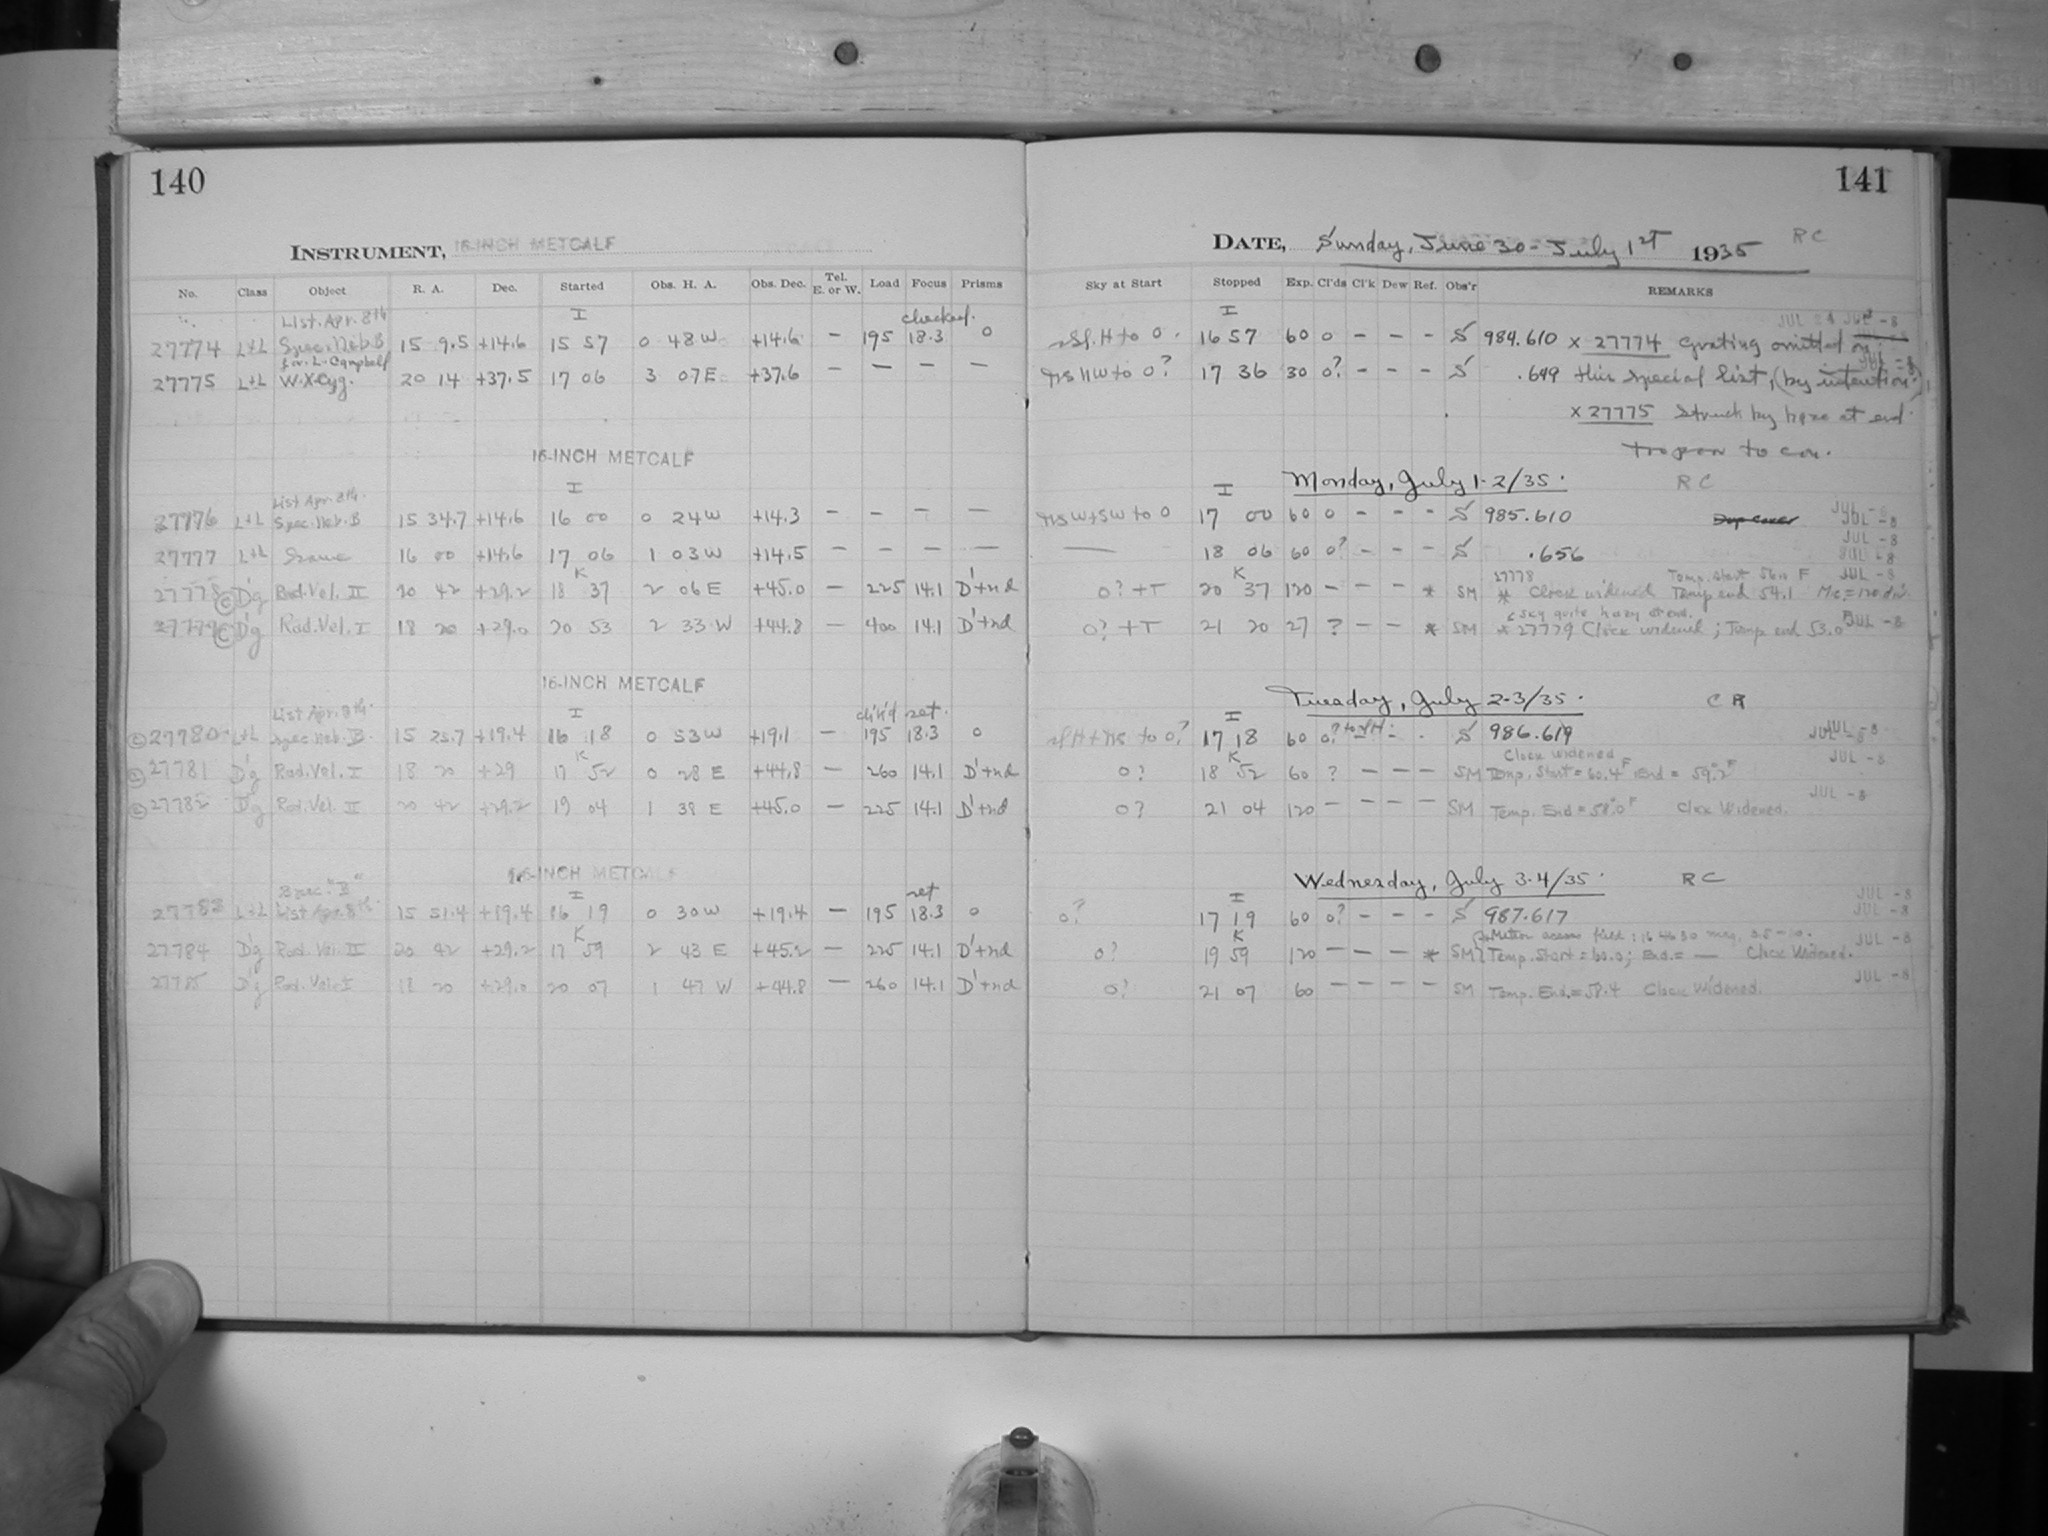 140
INSTRUMENT, 16-INCH METCALF
No. Class Object R. A. Dec. Started Obs. H. A. Obs. Dec. Tel. E. or W. Load Focus Prisms
List. Apr. 8th I checked.
27774 L+L Spec. Neb. B 15 9.5 +14.6 15 57 0 48 W +14.6 – 195 18.3 0
for L. Campbell
27775 L+L W.X.Cyg. 20 14 +37.5 17 06 3 07 E +37.6 – – – –
16-INCH METCALF
List Apr. 8th. I
27776 L+L Spec. Neb. B 15 34.7 +14.6 16 00 0 24 W +14.3 – – – –
27777 L+L Same 16 00 +14.6 17 06 1 03 W +14.5 – – – –
K
27778 C D'g Rad. Vel. II 20 42 +29.2 18 37 2 06 E +45.0 – 225 14.1 D'+nd
27779 C D'g Rad. Vel. I 18 20 +29.0 20 53 2 33 W +44.8 – 400 14.1 D'+nd
16-INCH METCALF
List Apr. 8th. I set
C 27780 L+L Spec. Neb. B. 15 25.7 +19.4 16 18 0 53 W +19.1 – 195 18.3 0
K
C 27781 D'g Rad. Vel. I 18 20 +29 17 52 0 28 E +44.8 – 260 14.1 D'+nd
C 27782 D'g Rad. Vel. II 20 42 +29.2 19 04 1 39 E +45.0 – 225 14.1 D'+nd
16-INCH METCALF
Spec. "B" I set
27783 L+L List Apr. 8th. 15 51.4 +19.4 16 19 0 30 W +19.4 – 195 18.3 0
K
27784 D'g Rad. Vel. II 20 42 +29.2 17 59 2 43 E +45.2 – 225 14.1 D'+nd
27785 D'g Rad. Vel. I 18 20 +29.0 20 07 1 47 W +44.8 – 260 14.1 D'+nd
141
DATE, Sunday, June 30 - July 1st 1935 RC
Sky at Start Stopped Exp. Cl'ds Cl'k Dew Ref. Obs'r REMARKS
I JUL -8
H to 0. 16 57 60 0 – – – S 984.610 x 27774 Grating omitted on
JUL -8
to 0? 17 36 30 0? – – – S .649 this special list, (by intention.)
x 27775 Struck by hose at end.
to con.
Monday, July 1-2/35. RC
I JUL -8
to 0 17 00 60 0 – – – S 985.610 JUL -8
JUL -8
18 06 60 0? – – – S .656 JUL -8
K 27778 Temp. start 56.0 F JUL -8
0? +T 20 37 120 – – – * SM * Clock widened Temp end 54.1
sky quite hazy at end.
0? +T 21 20 27 ? – – * SM * 27779 Clock widened; Temp end 53.0 JUL -8
Tuesday, July 2-3/35. CR
I JUL -8
to 0? 17 18 60 0? S 986.619 JUL -8
K Clock widened
0? 18 52 60 ? – – – SM Temp. Start = 60.4F End = 59.2F JUL -8
0? 21 04 120 – – – – SM Temp. End = 58.0F Clock Widened. JUL -8
Wednesday, July 3-4/35. RC
I JUL -8
0? 17 19 60 0? – – – S 987.617 JUL -8
K Meteor across field: 16 46 30
0? 19 59 120 – – – * SM Temp. Start = 60.0; End. = — Clock Widened. JUL -8
0? 21 07 60 – – – – SM Temp. End. = 58.4 Clock Widened. JUL -8